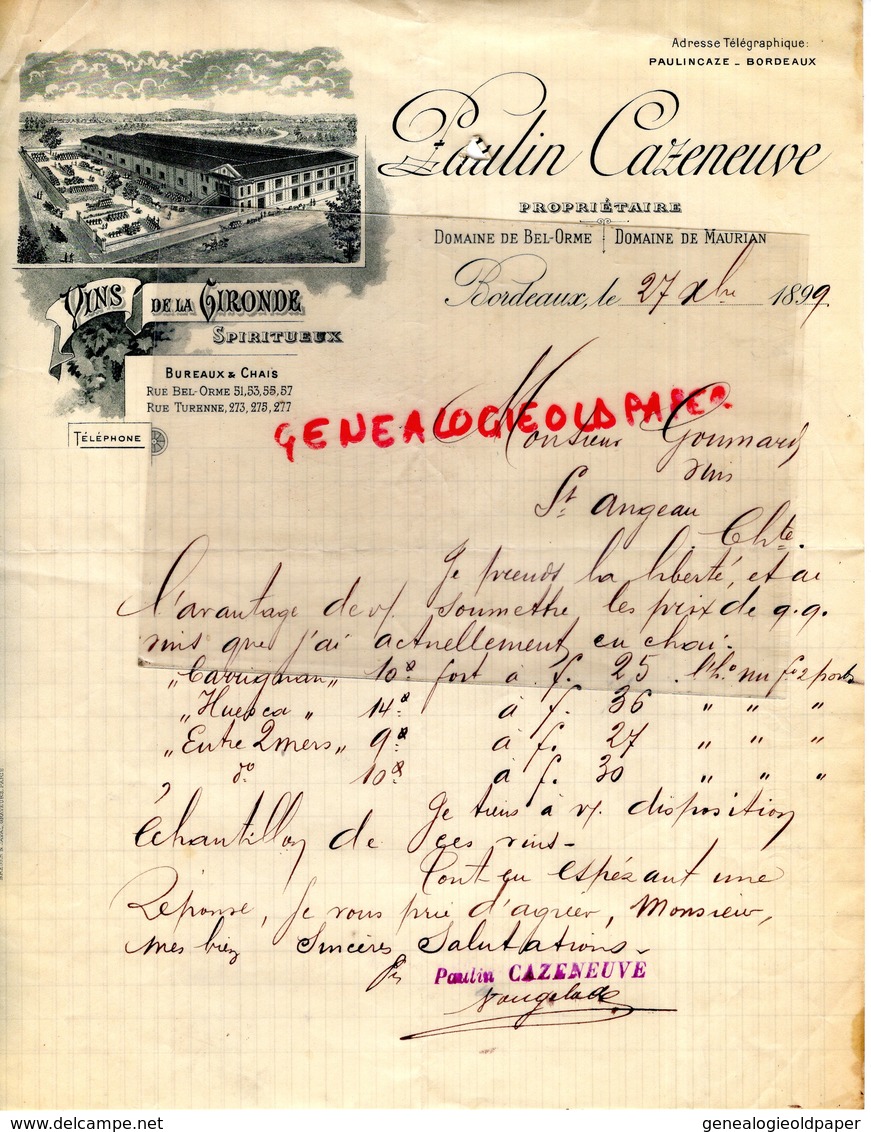 Adresse Télégraphique:
PAULINCAZE _ BORDEAUX
Paulin Cazeneuve
PROPRIÉTAIRE
DOMAINE DE BEL-ORME DOMAINE DE MAURIAN
VINS DE LA GIRONDE
SPIRITUEUX
Bordeaux, le 27 Xbre 1899
BUREAUX & CHAIS
RUE BEL-ORME 51,53,55,57
RUE TURENNE, 273, 275, 277
TÉLÉPHONE
GENEALOGIEOLDPAPER
Monsieur Goumard
vins
St. Angeau
Chte.
Je prends la liberté, et ai
l'avantage de v/ soumettre les prix de q.q.
vins que j'ai actuellement en chai.
"Carrignan" 10° fort à f. 25 l'h.° nu fo 2 ports
"Huesca" 14° à f. 36 " " "
"Entre 2 mers" 9° à f. 27 " " "
do 10° à f. 30 " " "
Je tiens à v/ disposition
échantillon de ces vins-
Tout en espérant une
Réponse, je vous prie d'agréer, Monsieur,
mes bien Sincères Salutations-
Paulin CAZENEUVE
genealogieoldpaper